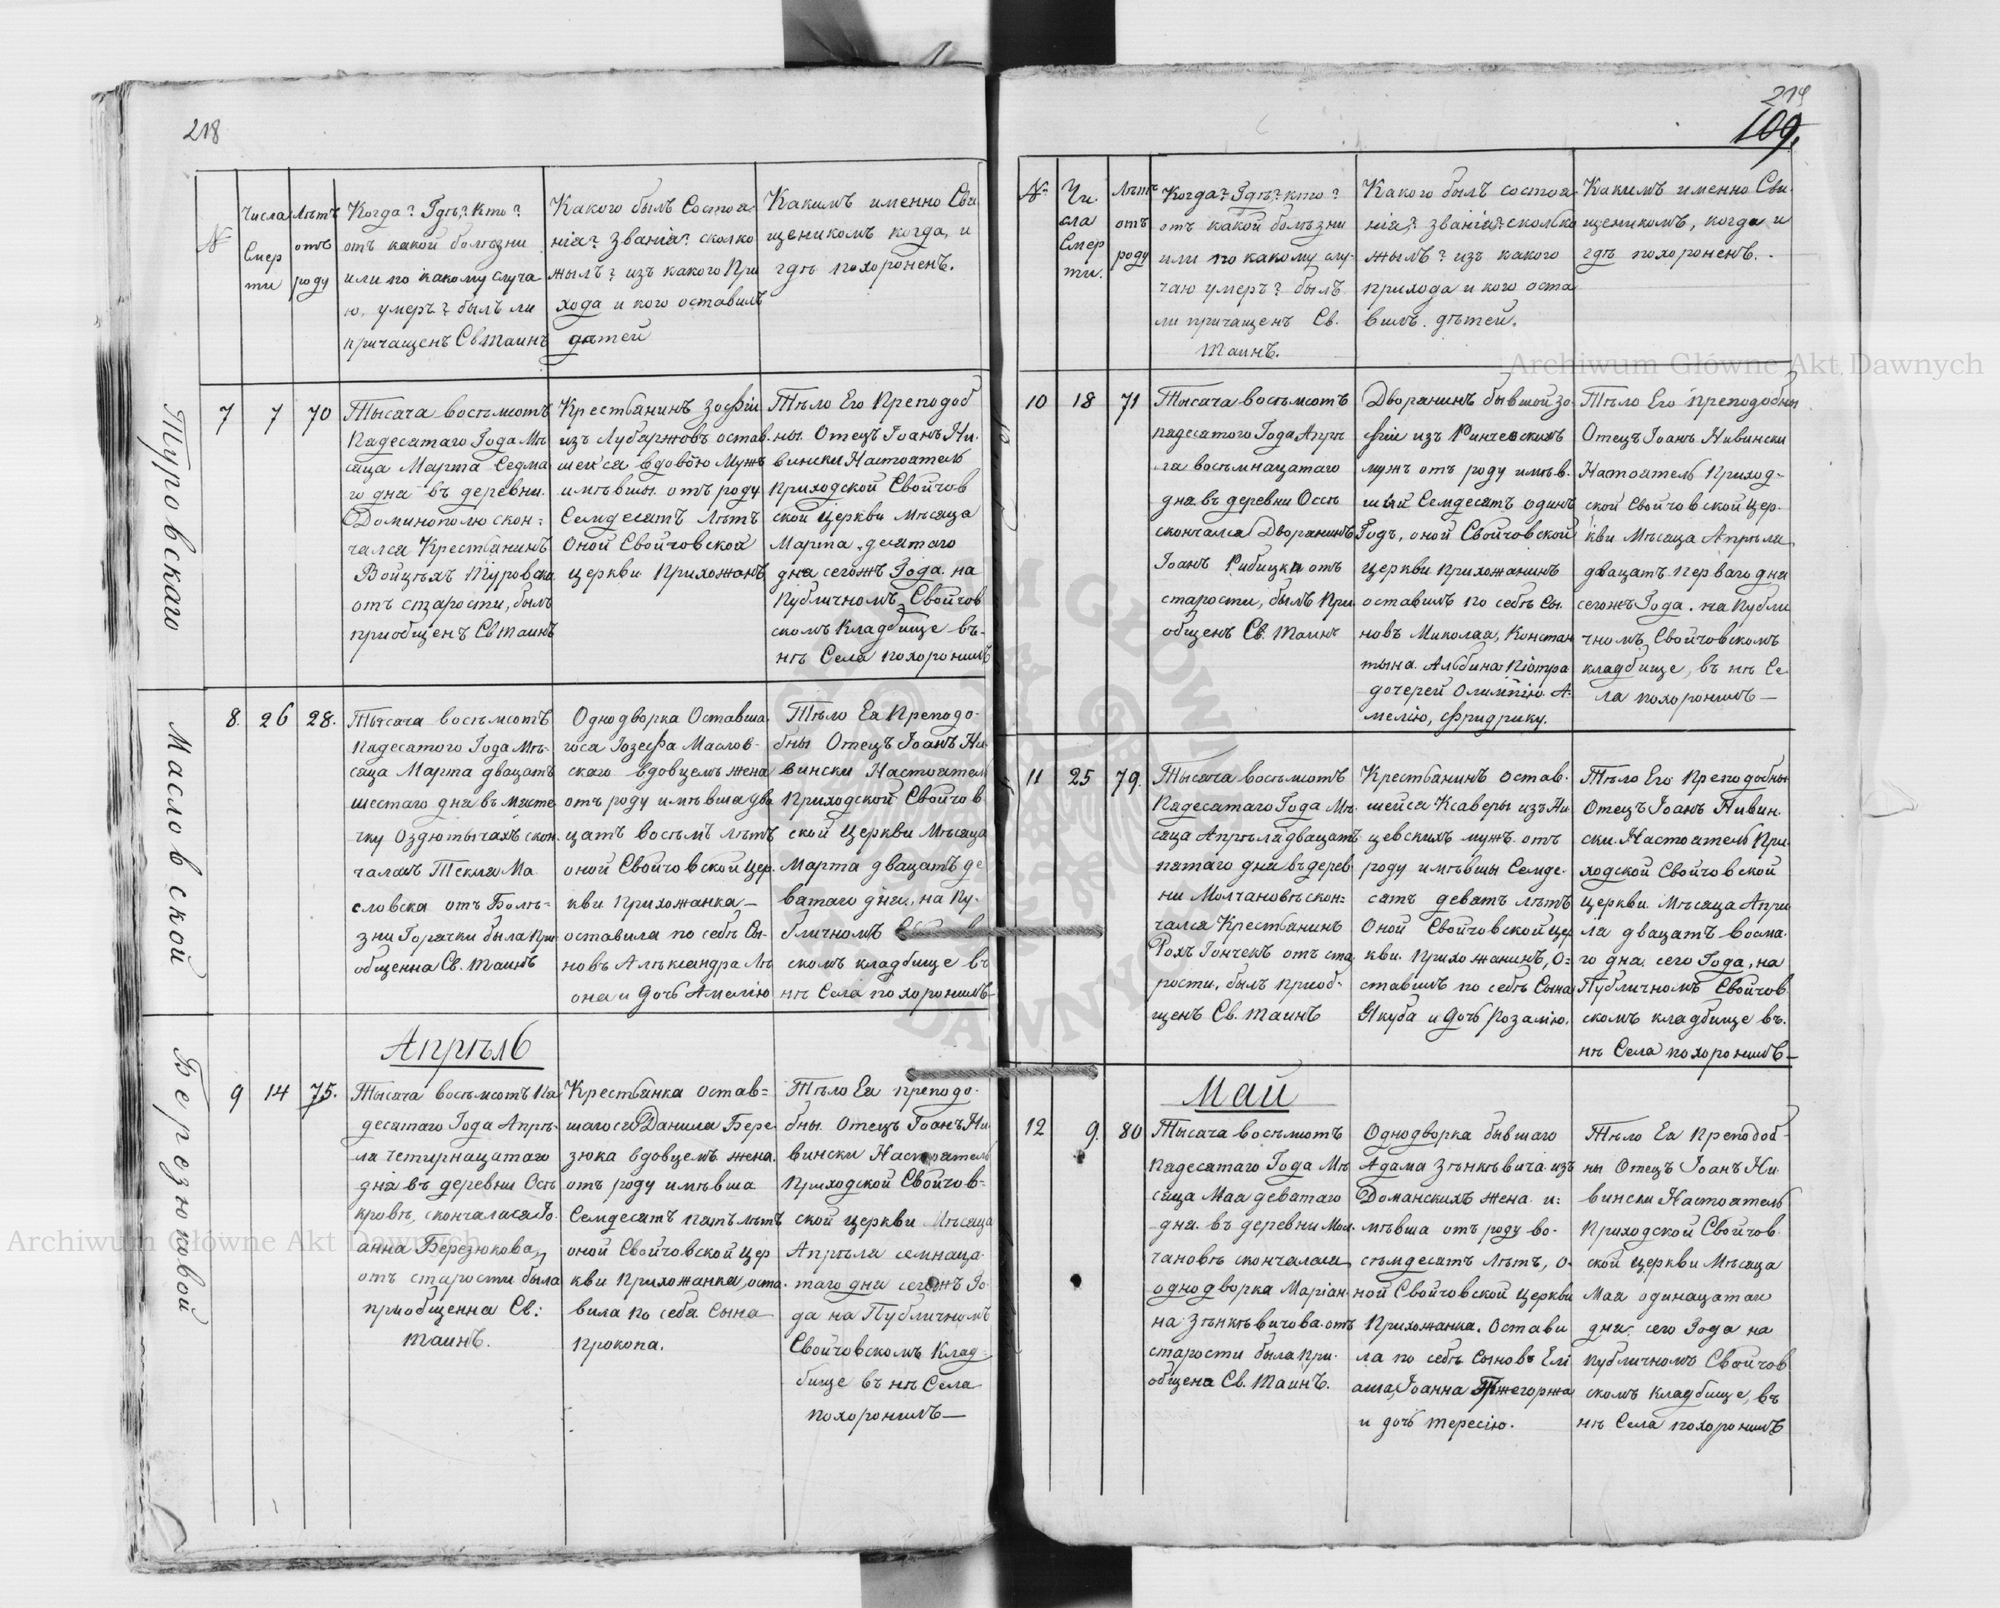 218
№
Числа
Смер
ти
Лѣтъ
отъ
роду
Когда? Гдѣ? Кто?
отъ какой болѣзни
или по какому случа
ю, умеръ? былъ ли
причащенъ Св Таинъ
Какого былъ Состоя
нія? Званіа? сколко
жылъ? изъ какого При
хода и кого оставилъ
дѣтей
Какимъ именно Свя
щеникомъ когда, и
гдѣ похороненъ.
Туровскаго
7
7
70
Тысяча восѣмсотъ
Падесатаго Года Мѣ
сяца Марта Седма
го дна въ деревни
Доминополю скон=
чался Крестьанинъ
Войцѣхъ Туровски
отъ старости, былъ
приобщенъ Св Таинъ
Крестьанинъ Зофіи
изъ Лубаржовъ остав
шейса вдовою Мужъ
имѣвшы отъ роду
Семдесатъ Лѣтъ
Оной Свойчовской
церкви Прихожанъ
Тѣло Его Преподоб
ны Отецъ Іоанъ Ни
вински Настоятель
Приходской Свойчов
ской Церкви Мѣсяца
Марта десатаго
дна сегожъ Года на
Публичномъ Свойчов
скомъ Кладбище въ
нѣ Села похоронилъ
Масловской
8.
26
28.
Тысяча восѣмсотъ
Падесатого Года Мѣ
сяца Марта двацатъ
шестаго дна въ Мисте
чку Оздютычахъ скон
чалась Текла Ма
словска отъ Болѣ=
зни Горачки была При
общенна Св. Таинъ
Однодворка Оставша
госа Іозефа Маслов
скаго вдовцемъ жена
отъ роду имѣвша два
цатъ восѣмъ лѣтъ
оной Свойчовской Цер
кви Прихожанка—
оставила по себѣ Сы
новъ Алѣксандра Лѣ
она и Дочь Амелію
Тѣло Еа Преподо
бны Отецъ Іоанъ Ни
вински Настоятел
Приходской Свойчов
ской Церкви Мѣсяца
Марта двацатъ де
ватаго дна, на Пу
бличномъ
скомъ кладбище въ
нѣ Села похоронилъ—
Березюковой
Апрѣль
9
14
75.
Тысяча восѣмсотъ Па
десатаго Года Апрѣ
ла четирнацатаго
дна въ деревни Осѣ
кровѣ, скончаласа Іо
анна Березюкова,
отъ старости была
приобщенна Св:
Таинъ.
Крестьанка остав=
шагоса Данила Бере
зюка вдовцемъ жена
отъ роду имѣвша
Семдесатъ пать лѣтъ
оной Свойчовской Цер
кви Прихожанка, оста
вила по себа Сына
Прокопа.
Тѣло Еа преподо
бны Отецъ Іоанъ Ни
вински Настоятель
Приходской Свойчов=
ской церкви Мѣсяца
Апрѣла семнаца
таго дна сегожъ Го
да на Публичномъ
Свойчовскомъ Клад
бище въ нѣ Села
похоронилъ—
219
109.
№
Чи
сла
Смер
ти.
Лѣтъ
отъ
роду
Когда? Гдѣ? кто?
отъ какой болѣзни
или по какому слу
чаю умеръ? былъ
ли причащенъ Св.
Таинъ.
Какого былъ состоа
ніа? званіа? сколко
жылъ? изъ какого
прихода и кого оста
вилъ дѣтей.
Какимъ именно Сва
щеникомъ, когда и
гдѣ похороненъ.
10
18
71
Тысяча восѣмсотъ
падесатого Года Апрѣ
ла восѣмнацатаго
дна въ деревни Оссѣ
скончалса Дворанинъ
Іоанъ Рибицки отъ
старости, былъ При
общенъ Св. Таинъ
Дворанинъ бывшой Зо
фіи изъ Ринчевскихъ
мужъ отъ роду имѣв
шый Семдесатъ одинъ
Годъ, оной Свойчовской
церкви Прихожанинъ
оставилъ по себѣ Сы
новъ Миколаа, Констан
тына. Альбина Піотра
дочерей Олимпію А=
мелію, Фридрику.
Тѣло Его преподобны
Отецъ Іоанъ Нивински
Настоятель Приход=
ской Свойчовской Цер
кви Мѣсяца Апрѣла
двацатъ перваго дна
сегожъ Года. на Публи
чномъ Свойчовскомъ
кладбище, въ нѣ Се
ла похоронилъ—
11
25
79.
Тысяча восѣмсотъ
Падесатаго Года Мѣ
сяца Апрѣла двацатъ
патаго дна въ дерев
ни Молчановѣ скон=
чалса Крестьанинъ
Рохъ Гончекъ отъ ста
рости, былъ приоб
щенъ Св. Таинъ
Крестьанинъ остав
шейса Ксаверы изъ Ни
цевскихъ мужъ отъ
роду имѣвшы Семде
сатъ деватъ лѣтъ
Оной Свойчовской Цер
кви Прихожанинъ, О=
ставилъ по себѣ Сына
Якуба и Дочь Розалію.
Тѣло Его Преподобны
Отецъ Іоанъ Нивин
ски Настоятель При
ходской Свойчовской
Церкви Мѣсяца Апрѣ
ла двацатъ восма
го дна сего Года, на
Публичномъ Свойчов
скомъ кладбище въ
нѣ Села похоронилъ—
Май
12
9.
80
Тысяча восѣмсотъ
Падесатаго Года Мѣ
сяца Маа деватаго
дна въ деревни Мол
чановѣ скончаласа
однодворка Маріан
на Зѣнкѣвичова отъ
старости была При
общена Св. Таинъ.
Однодворка бывшаго
Адама Зѣнкѣвича изъ
Доманскихъ жена и=
мѣвша отъ роду во
сѣмдесатъ Лѣтъ, о
ной Свойчовской Церкви
Прихожанка. Остави
ла по себѣ Сыновъ Елі
аша, Іоанна Гжегоржа
и дочь Тересію.
Тѣло Еа Преподоб
ны Отецъ Іоанъ Ни
вински Настоятель
Приходской Свойчов
ской Церкви Мѣсяца
Маа одинацатаго
дна сего Года на
Публичномъ Свойчов
скомъ Кладбище, въ
нѣ Села похоронилъ
Archiwum Główne Akt Dawnych
Archiwum Główne Akt Dawnych